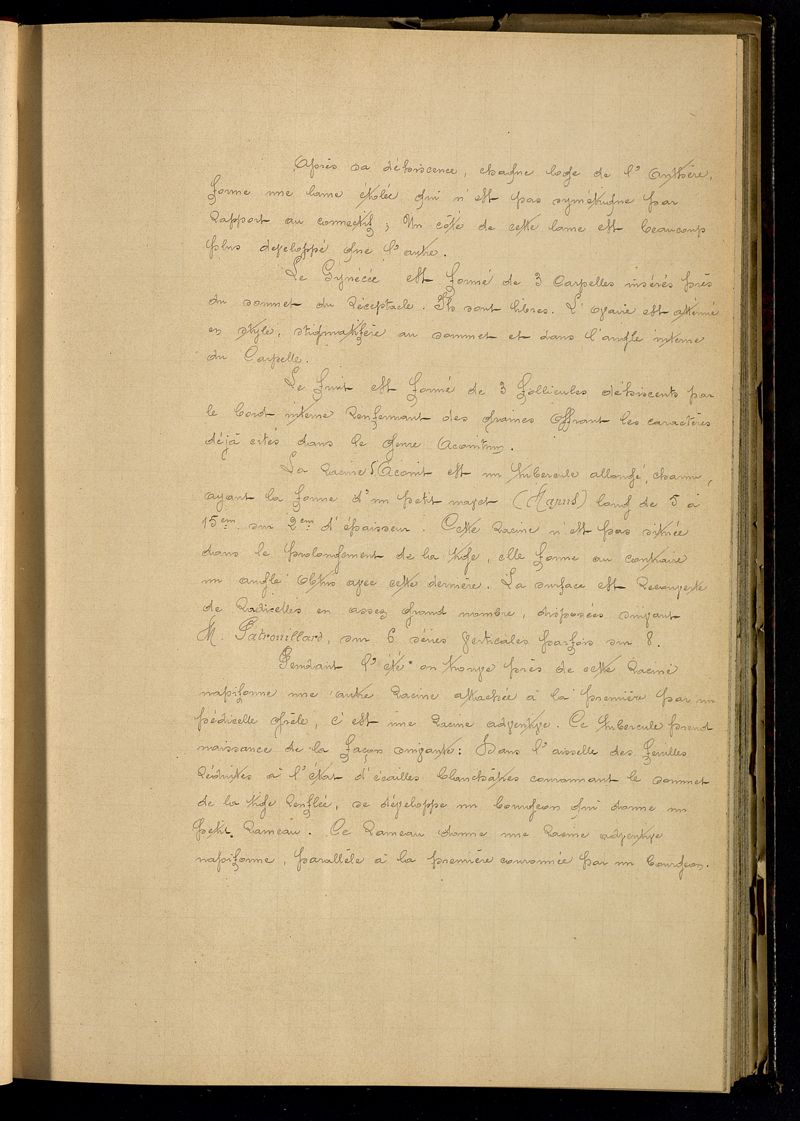 Après sa déhiscence, chaque loge de l'Anthère,
forme une lame étalée qui n'est pas symétrique par
Rapport au connectif ; Un côté de cette lame est beaucoup
plus développé que l'autre.
Le Gynécée est formé de 3 Carpelles insérés près
du sommet du Réceptacle. Ils sont libres. L'ovaire est atténué
en style, stigmatifère au sommet et dans l'angle interne
du Carpelle.
Le fruit est formé de 3 follicules déhiscents par
le bord interne Renfermant des graines offrant les caractères
déjà cités dans le genre Aconitum.
La Racine d'Aconit est un tubercule allongé, charnu,
ayant la forme d'un petit navet (Napus) long de 5 à
15 cm sur 2 cm d'épaisseur. Cette Racine n'est pas située
dans le prolongement de la tige, elle forme au contraire
un angle obtus avec cette dernière. La surface est Recouverte
de Radicelles en assez grand nombre, disposées suivant
M. Patrouillard, sur 6 séries verticales parfois sur 8.
Pendant l'été on trouve près de cette Racine
napiforme une autre Racine attachée à la première par un
pédicelle grêle, c'est une Racine adventive. Ce tubercule prend
naissance de la façon suivante : Dans l'aisselle des feuilles
Réduites à l'état d'écailles blanchâtres couronnant le sommet
de la tige Renflée, se développe un bourgeon qui donne un
petit Rameau. Ce Rameau donne une Racine adventive
napiforme, parallèle à la première couronnée par un bourgeon.